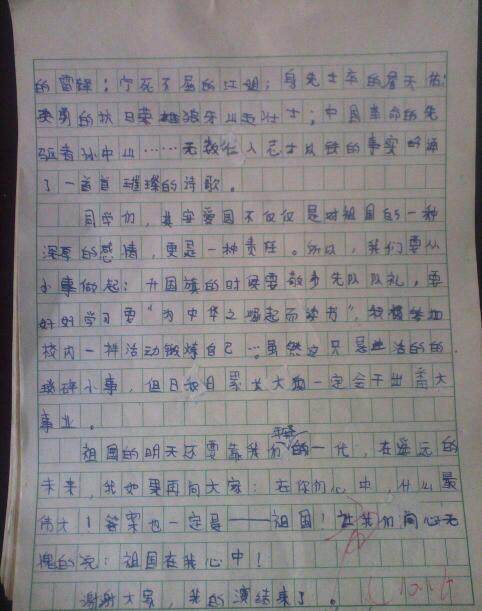 的雷锋；宁死不屈的江姐；身先士卒的詹天佑；
英勇的抗日英雄狼牙山五壮士；中国革命的先
驱者孙中山……无数仁人志士以铁的事实吟诵
了一首首璀璨的诗歌。
同学们，其实爱国不仅仅是对祖国的一种
深厚的感情，更是一种责任。所以，我们要从
小事做起：升国旗的时候要敬少先队队礼，要
好好学习要“为中华之崛起而读书”，积极参加
校内一种活动锻炼自己…虽然这只是生活的的
琐碎小事，但日积月累长大勤一定会干出番大
事业。
祖国的明天还要靠我们年轻的一代，在遥远的
未来，我如果再问大家：在你们心中，什么最
伟大！答案也一定是——祖国！让我们问心无
愧的说：祖国在我心中！
谢谢大家，我的演结束了。